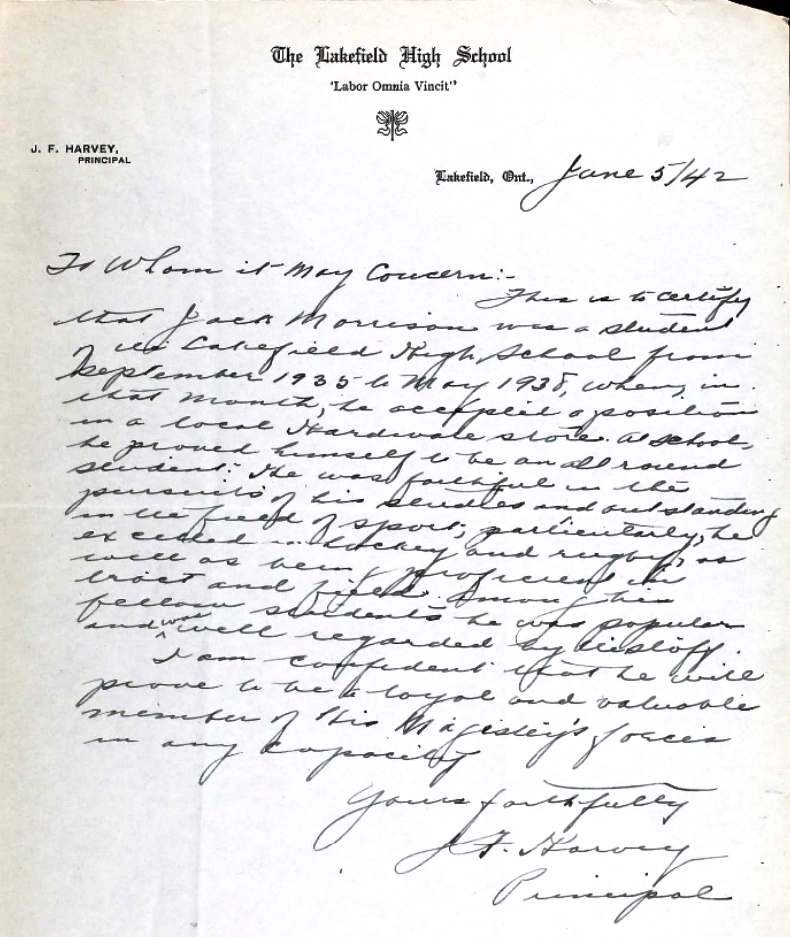 The Lakefield High School
'Labor Omnia Vincit"
J. F. HARVEY,
PRINCIPAL
Lakefield, Ont., June 5/42
To Whom it May Concern:-
This is to certify
that Jack Morrison was a student
of the Lakefield High School from
September 1935 to May 1938, when, in
that month, he accepted a position
in a local Hardware store. At school,
he proved himself to be an all round
student. He was faithful in the
pursuits of his studies and outstanding
in the field of sport; particularly, he
excelled in hockey and rugby, as
well as being proficient in
tract and field. Among his
fellow students he was popular
and was well regarded by the staff.
I am confident that he will
prove to be a loyal and valuable
member of His Magisty's forces
in any capacity
Yours faithfully
J. F. Harvey
Principal